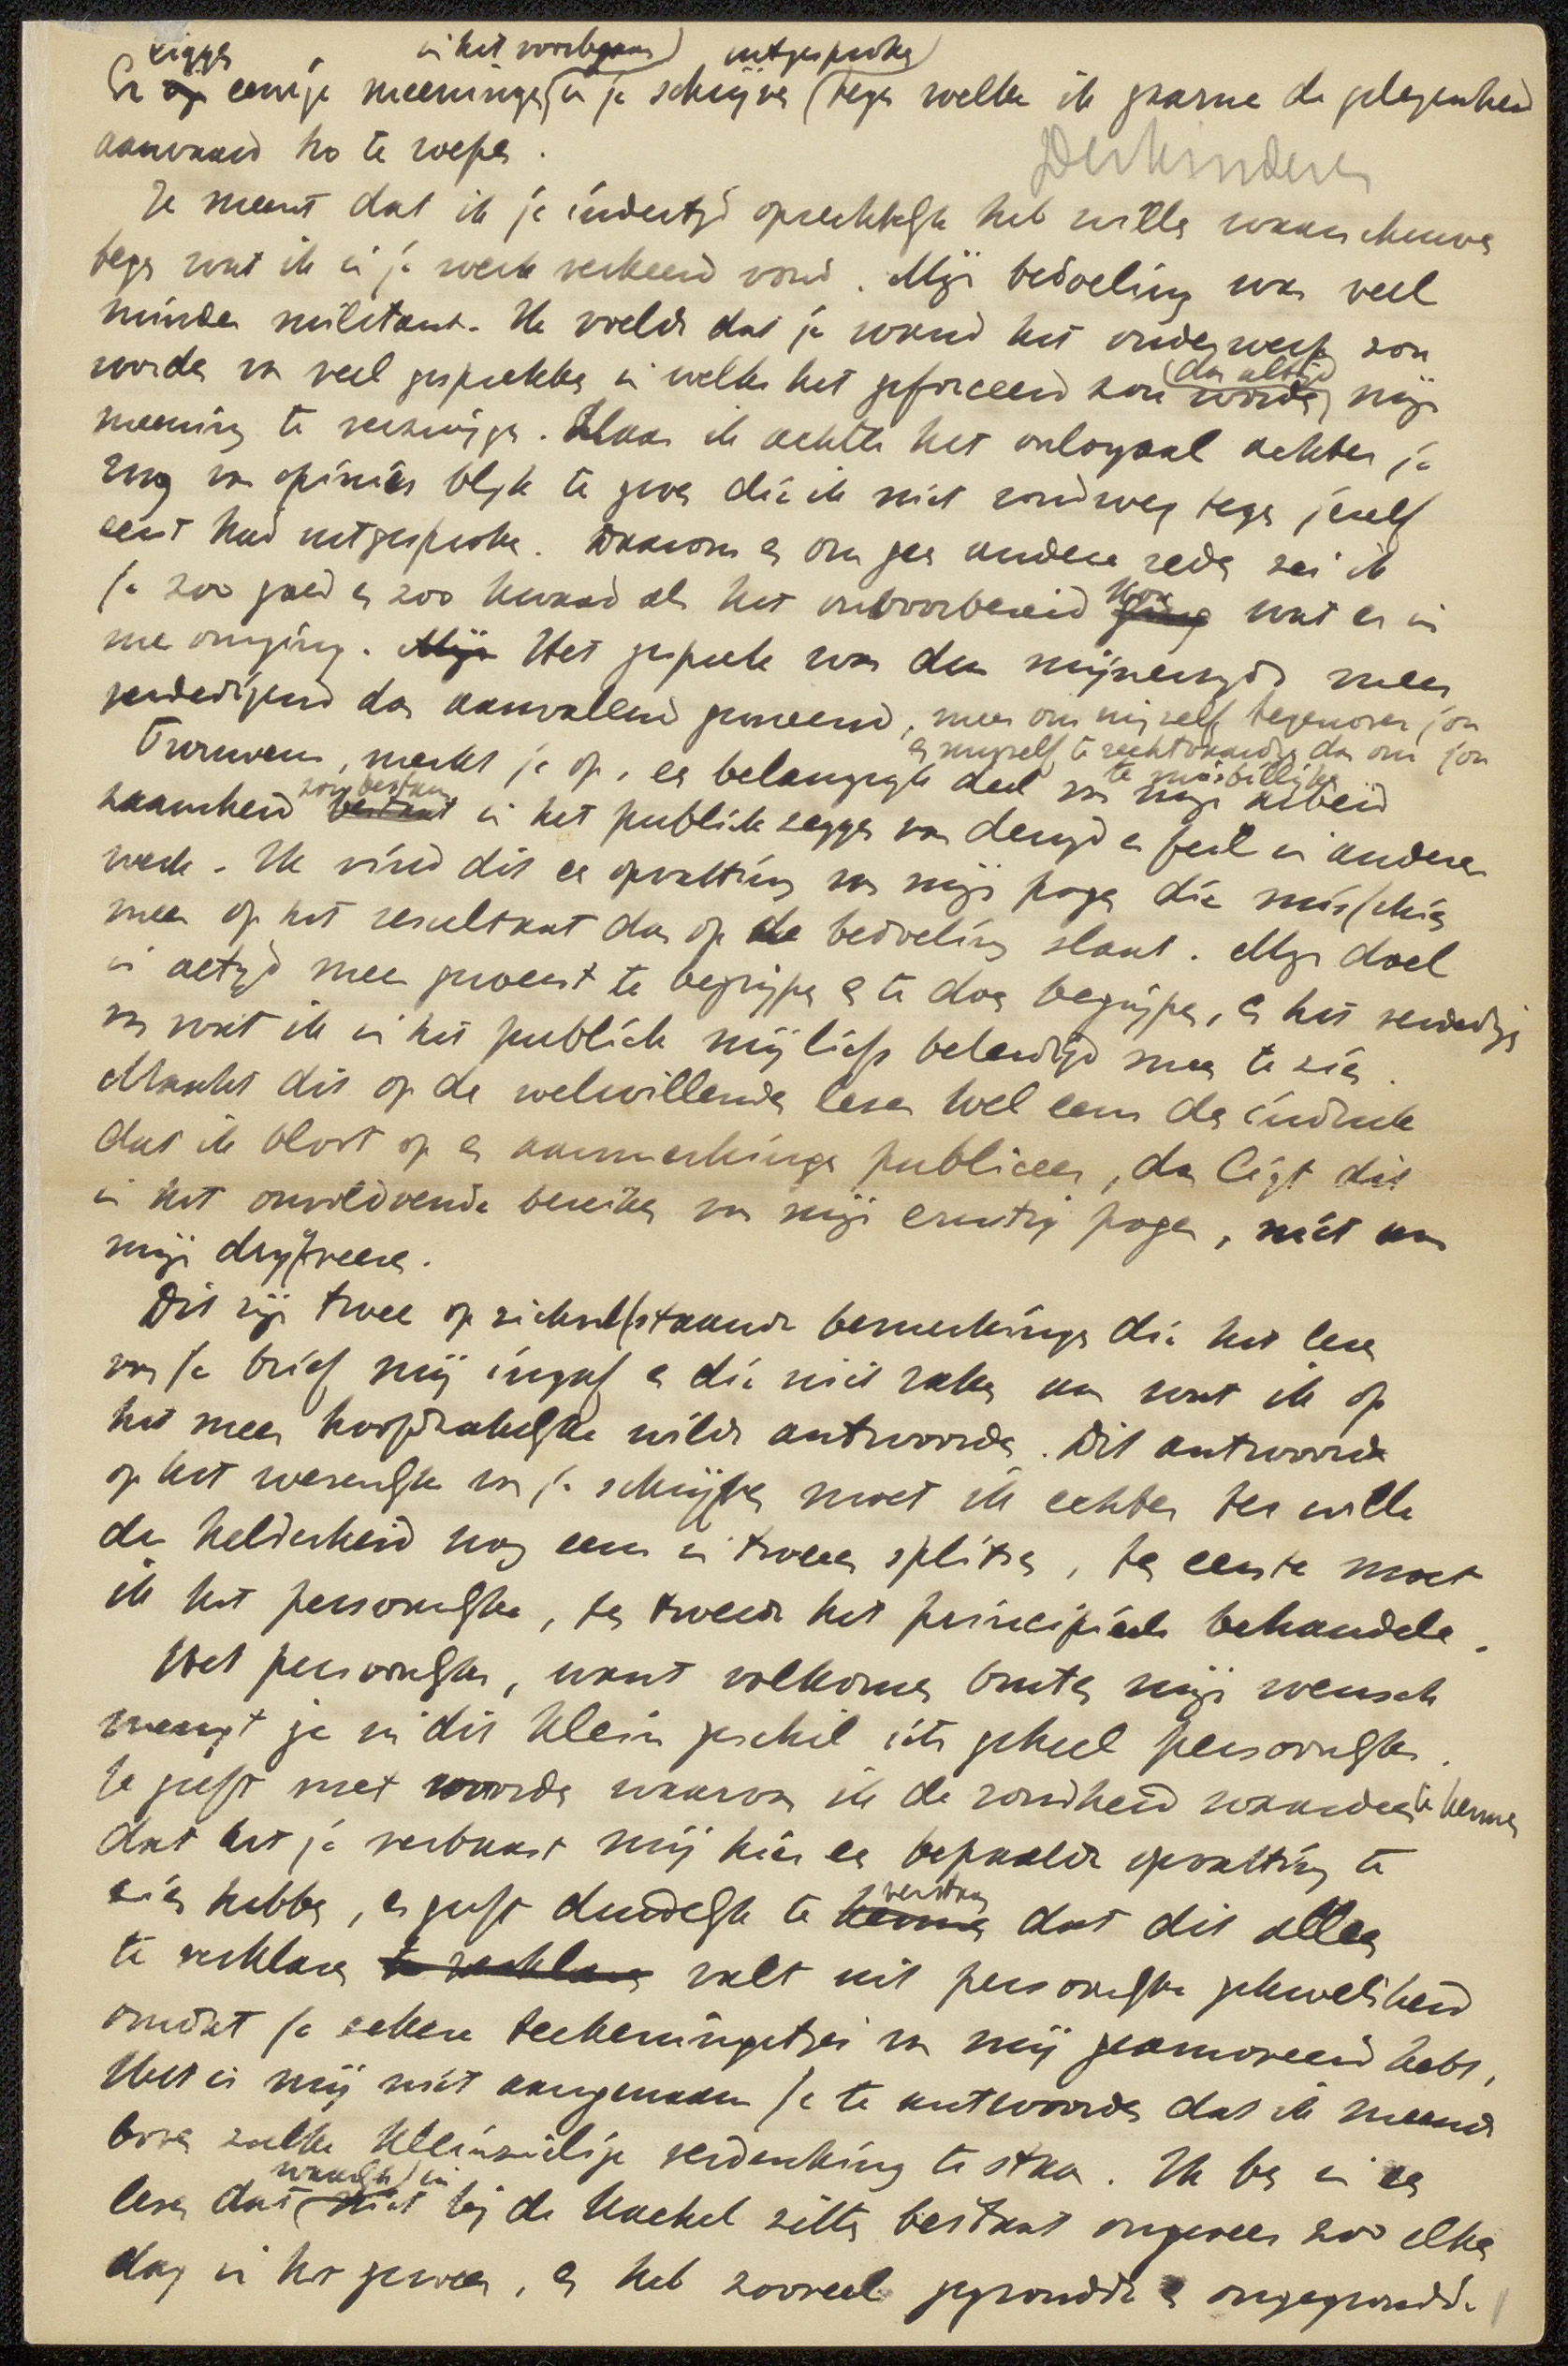 liggen in het voorbijgaan) uitgesproken)
Er zijn eenige meeningen in je schrijven (tegen welke ik gaarne de gelegenheid
aanvaard ho te wepen.
Derkinderen
Je meent dat ik je indertijd oprechtelijk heb willen waarschuwen
tegen wat ik in je werk verkeerd vond. Mijn bedoeling was veel
minder militant. Ik voelde dat je wand het onderwerp zou
worden van veel gesprekken in welke het geforceerd zou (dan altijd) worden mijn
meening te verzwijgen. Maar ik achtte het onloyaal achter je
rug van opiniën blijk te geven die ik niet rondweg tegen jezelf
eerst had uitgesproken. Daarom en om geen andere reden zei ik
je zoo goed en zoo kwaad als het onvoorbereid kon ging wat er in
me omging. Mijn Het gesprek was dan mijnerzijds meer
verdedigend dan aanvallend gemeend, meer om mijzelf tegenover jou
en mijzelf te rechtvaardigen dan om jou
te misbillijken
Trouwens, merkt je op, een belangrijk deel van mijn arbeid
zaamheid zou bestaan bestaat in het publiek zeggen van deugd en feil in anderer
werk. Ik vind dit een opvatting van mijn pogen die misschien
meer op het resultaat dan op de bedoeling slaat. Mijn doel
is altijd meer geweest te begrijpen en te doen begrijpen, en het verdedigen
van wat ik in het publiek mij liefs beleedigd meen te zien.
Maakt dit op de welwillenden lezer wel eens den indruk
dat ik bloot op en aanmerkingen publiceer, dan ligt dit
in het onvoldoende bereiken van mijn ernstig pogen, niet aan
mijn drijfveeren.
Dit zijn twee op zichzelfstaande bemerkingen die het lezen
van je brief mij ingaf en die niet raken aan wat ik op
het meer hoofdzakelijke wilde antwoorden. Dit antwoord
op het wezenlijke van je schrijven moet ik echter ter wille
der helderheid nog eens in tweeën splitsen, ten eerste moet
ik het persoonlijke, ten tweede het principieele behandelen.
Het persoonlijke, want volkomen buiten mijn wensch
mengt je in dit klein geschil iets geheel persoonlijks.
Je geeft met woorden waarvan ik de rondheid waardeer te kennen
dat het je verbaast mij hier een bepaalde opvatting te
zien hebben, en geeft duidelijk te verstaan kennen dat dit alleen
te verklaren te verklaren valt uit persoonlijke gekweldheid
omdat je zekere teekeningetjes van mij geamoveerd hebt.
Het is mij niet aangenaam je te antwoorden dat ik meende
boven zulke kleinzielige verdenking te staan. Ik ben in een
leven dat niet bij de kachel zitten bestaat ongeveer zoo elken
dag in het geweer, en heb zooveel gegronde en ongegronde